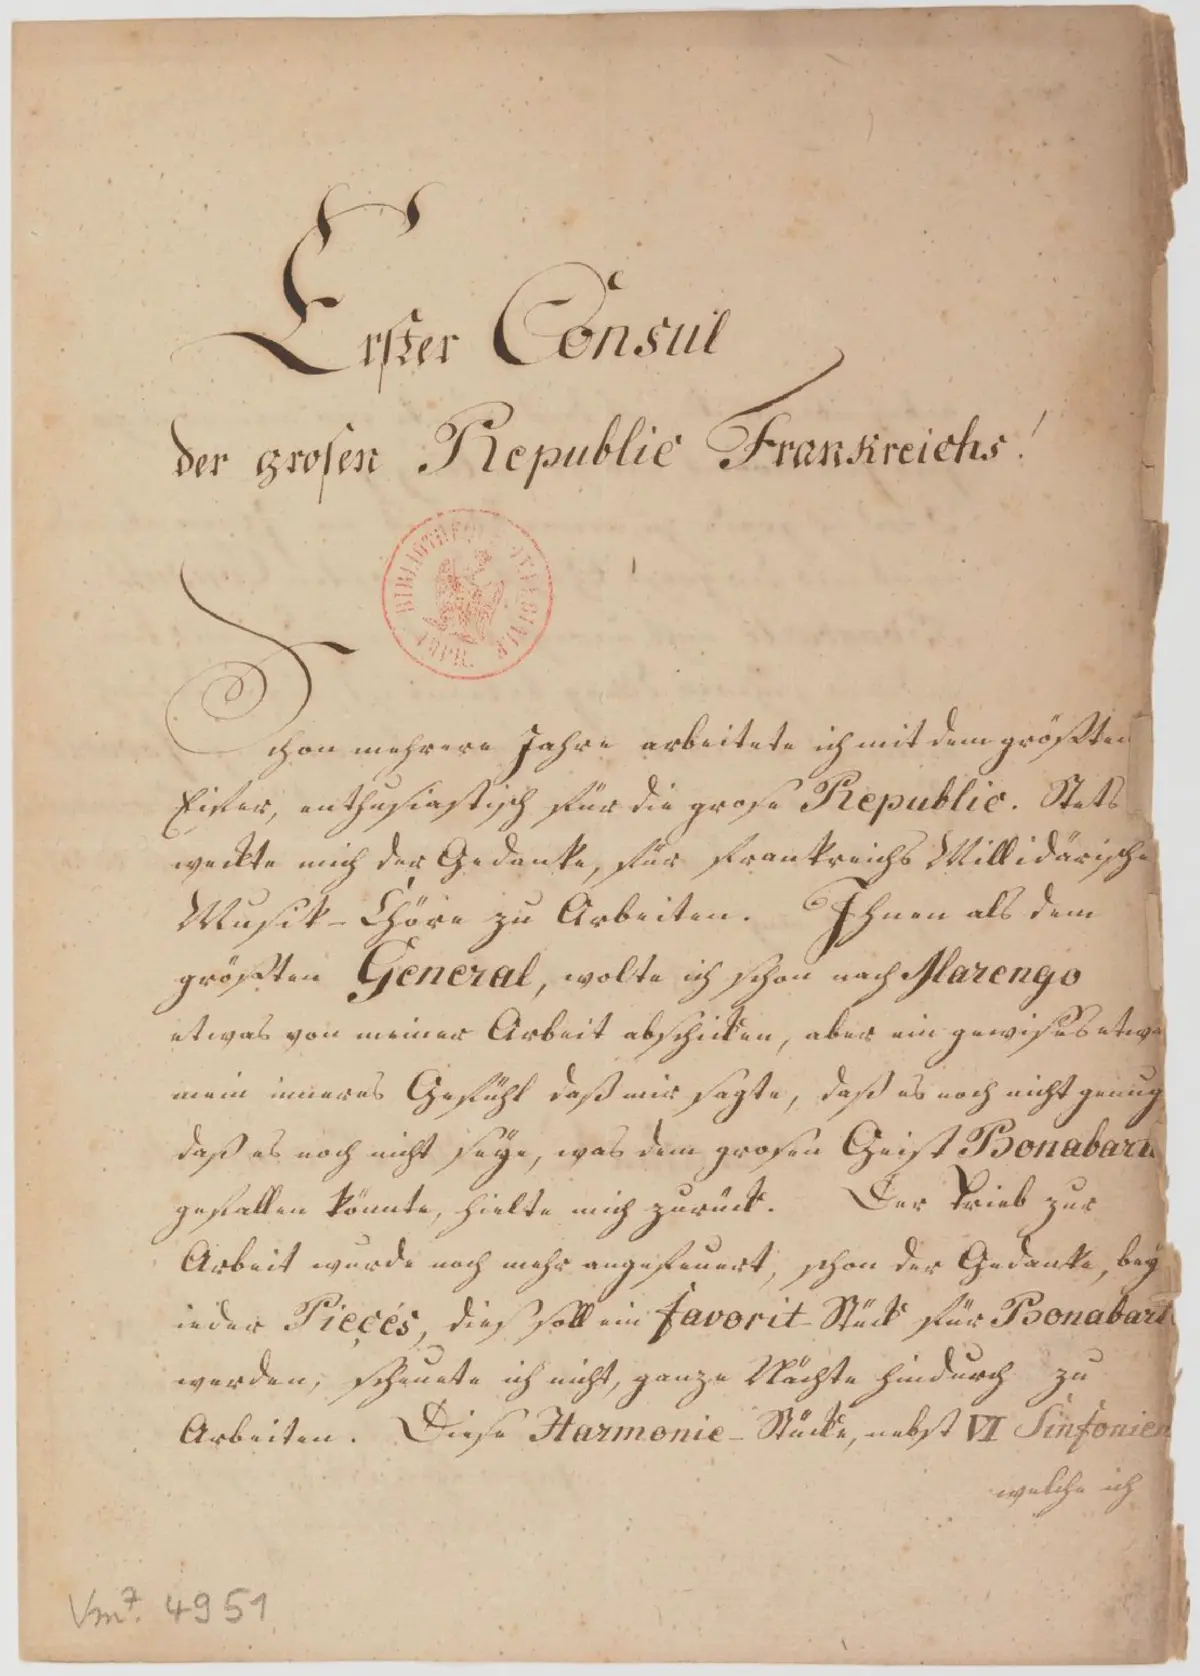 Erster Consul
der grosen Republic Frankreichs!
BIBLIOTHEQUE
Schon mehrere Jahre arbeitete ich mit dem größten
Eifer, enthusiastisch für die grose Republic. Stets
weckte mich der Gedanke, für Frankreichs Millidärische
Musik-Chöre zu Arbeiten. Ihnen als dem
größten General, wolte ich schon nach Marengo
etwas von meiner Arbeit abschicken, aber ein gewißes etwa
mein inneres Gefühl daß mir sagte, daß es noch nicht genug
daß es noch nicht seye, was dem grosen Geist Bonabart
gefallen könnte, hielte mich zurück. Der Trieb zur
Arbeit wurde noch mehr angefeuert, schon der Gedanke, bey
ieder Pieçés, dies soll ein favorit-Stück für Bonabart
werden, scheuete ich nicht, ganze Nächte hindurch zu
Arbeiten. Diese Harmonie-Stücke, nebst VI Sinfonien
welche ich
Vm⁷. 4951